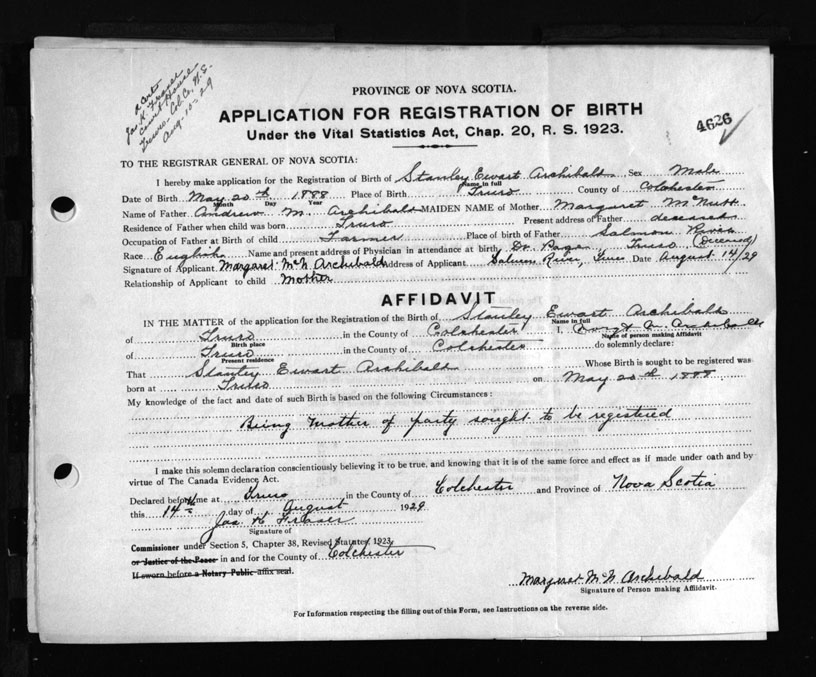 1 Cert
Jas. K. Fraser
Court House
Truro, Col. Co. N.S.
Aug. 15-29
PROVINCE OF NOVA SCOTIA.
APPLICATION FOR REGISTRATION OF BIRTH
Under the Vital Statistics Act, Chap. 20, R. S. 1923.
4626
TO THE REGISTRAR GENERAL OF NOVA SCOTIA:
I hereby make application for the Registration of Birth of Stanley Ewart Archibald Sex Male
Name in full
Date of Birth May 20th 1888 Place of Birth Truro County of Colchester
Month Day Year
Name of Father Andrew M. Archibald MAIDEN NAME of Mother Margaret McNutt
Residence of Father when child was born Truro Present address of Father deceased
Occupation of Father at Birth of child Farmer Place of birth of Father Salmon River
Race English Name and present address of Physician in attendance at birth Dr. Page, Truro (Deceased)
Signature of Applicant Margaret McN Archibald Address of Applicant Salmon River, Truro Date August 14/29
Relationship of Applicant to child Mother
AFFIDAVIT
IN THE MATTER of the application for the Registration of the Birth of Stanley Ewart Archibald
Name in full
of Truro in the County of Colchester I, Margt M Archibald
Birth place Name of person making Affidavit
of Truro in the County of Colchester do solemnly declare:
Present residence
That Stanley Ewart Archibald Whose Birth is sought to be registered was
born at Truro on May 20th 1888
My knowledge of the fact and date of such Birth is based on the following Circumstances:
Being Mother of party sought to be registered
I make this solemn declaration conscientiously believing it to be true, and knowing that it is of the same force and effect as if made under oath and by
virtue of The Canada Evidence, Act.
Declared before me at Truro in the County of Colchester and Province of Nova Scotia
this 14th day of August 1929
Jas K Fraser
Signature of
Commissioner under Section 5, Chapter 38, Revised Statutes, 1923
or Justice of the Peace in and for the County of Colchester
If sworn before a Notary Public affix seal.
Margaret McN Archibald
Signature of Person making Affidavit.
For Information respecting the filling out of this Form, see Instructions on the reverse side.